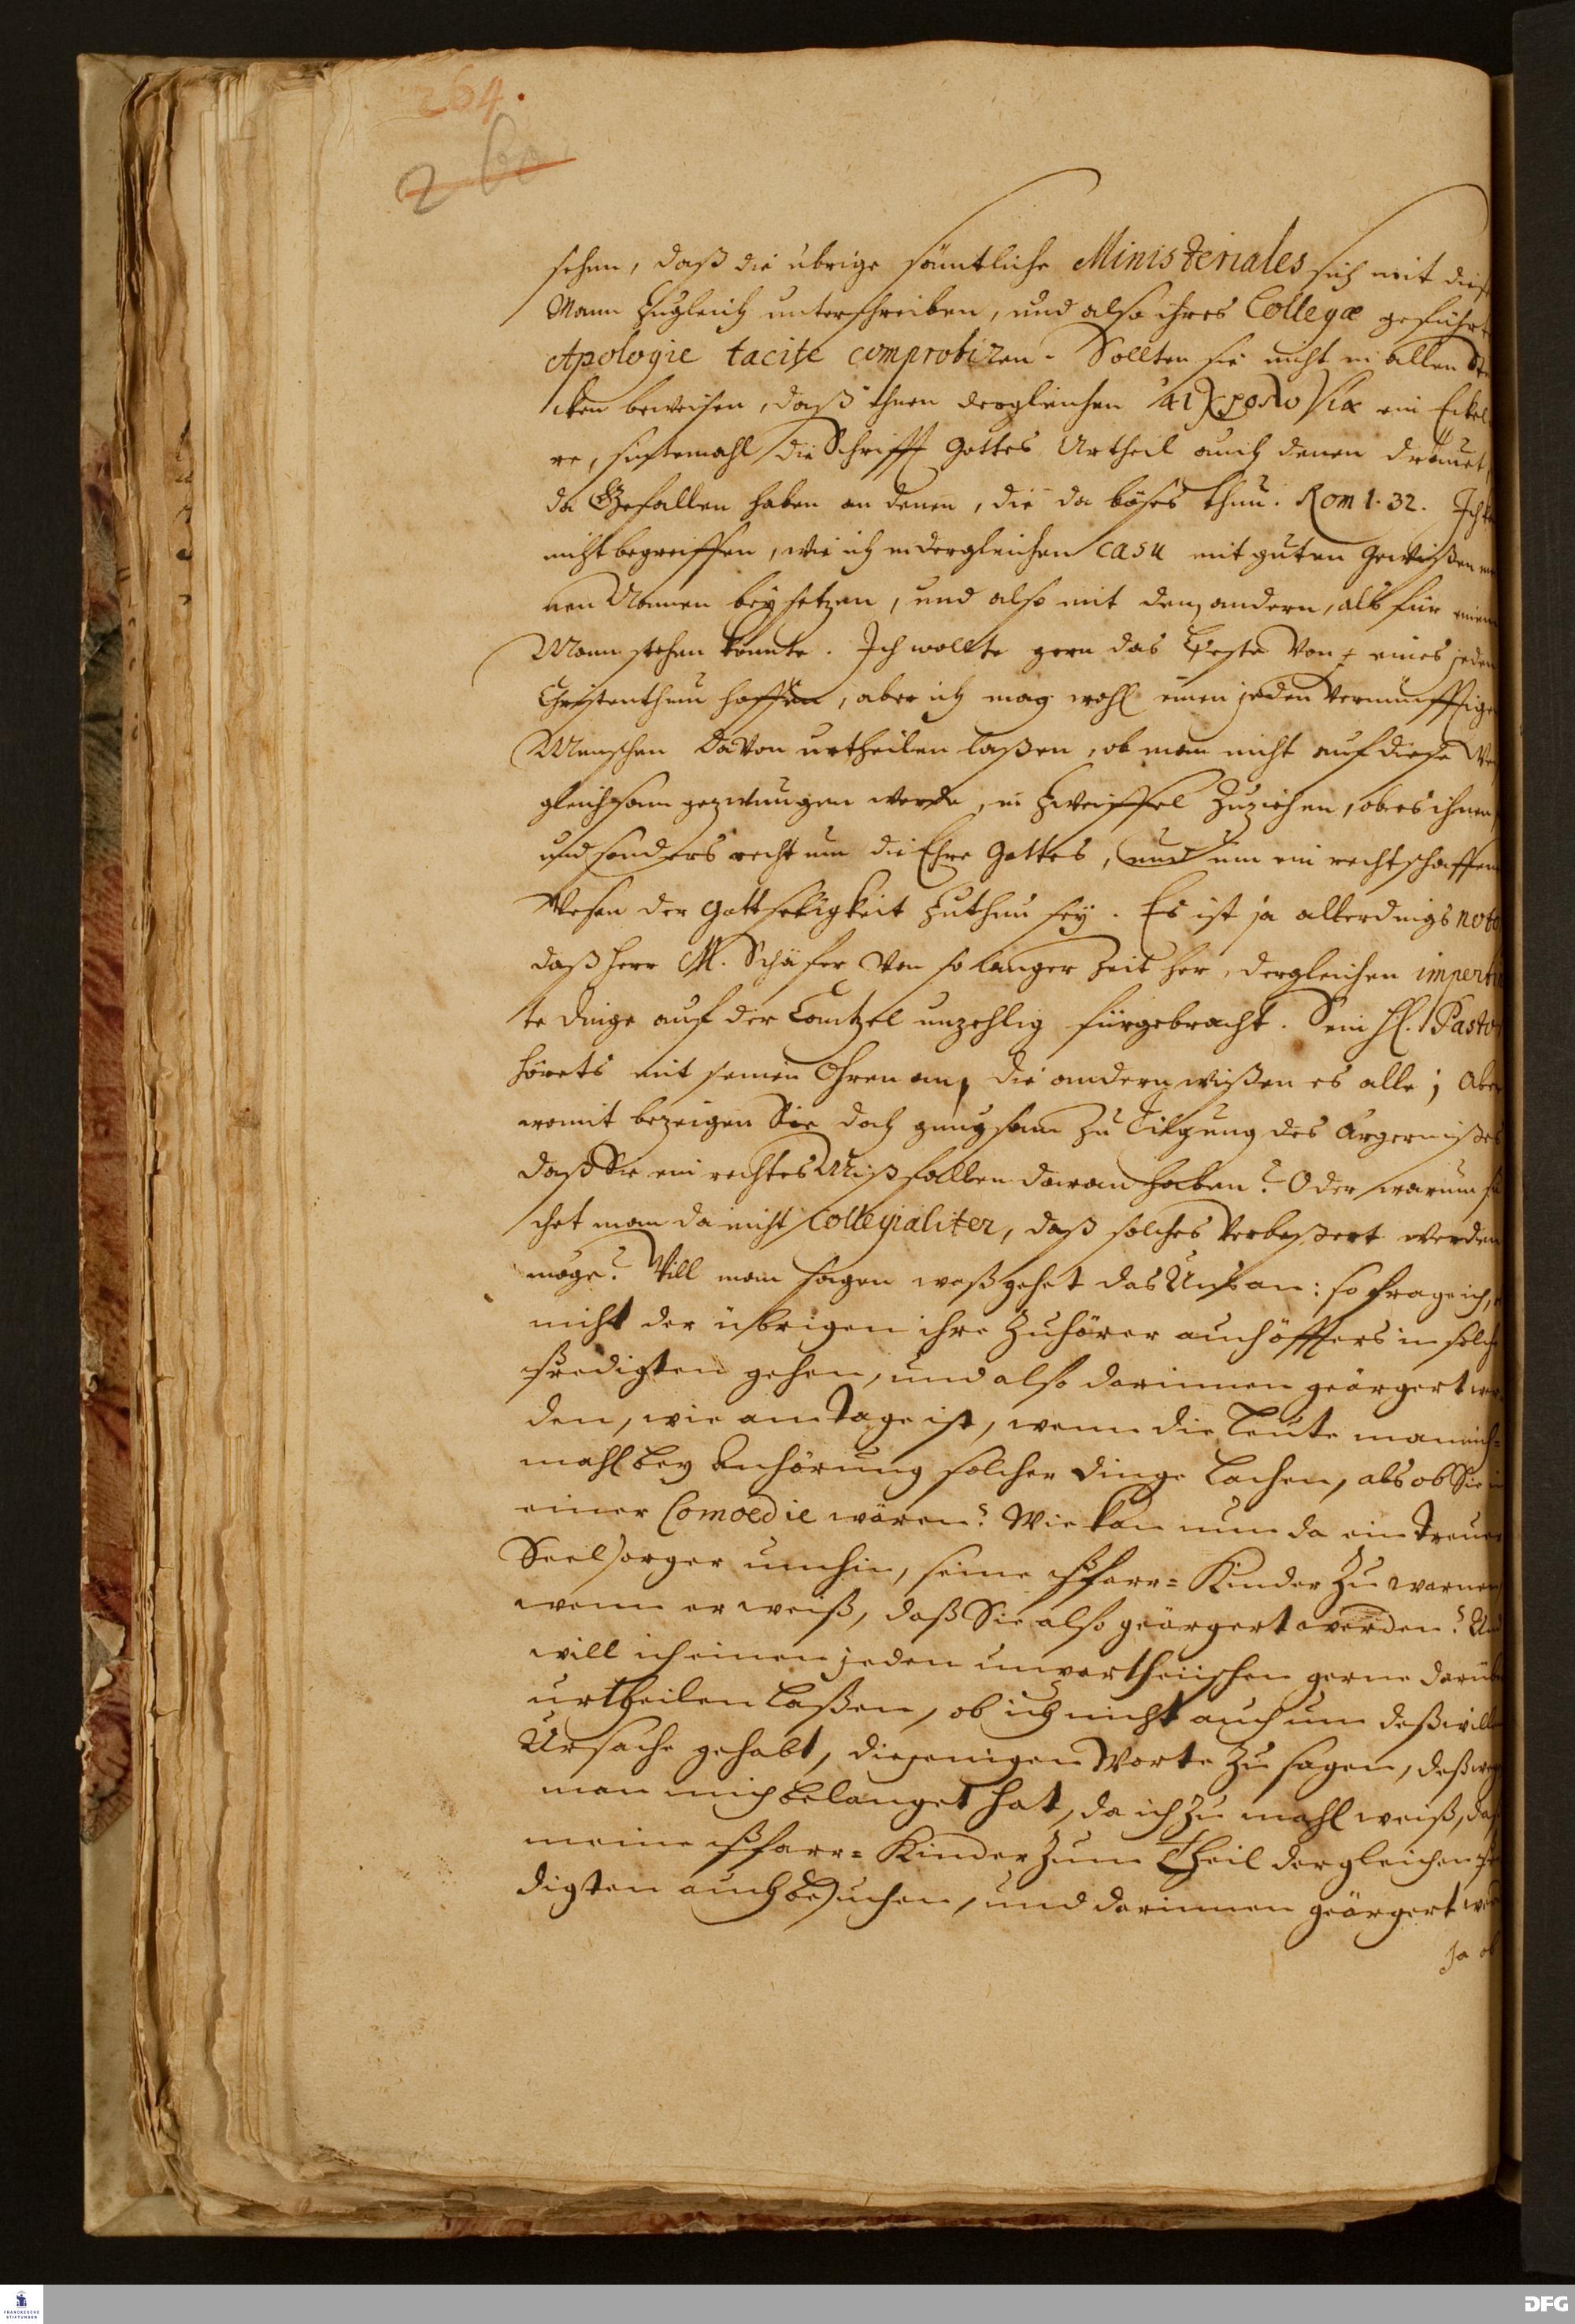 264.
260
sehen, daß die übrige sämtliche Ministeriales sich mit dies
Mann zugleich unterschreiben, und also ihres Collegæ geführt
Apologie tacite comprobiren. Sollten sie nicht in allen Stü
cken beweisen, daß ihnen dergleichen αἰχρολογία ein Eckel
re, sintemahl die Schrifft Gottes Urtheil auch denen dräuet,
da Gefallen haben an denen, die da böses thun. Rom 1. 32. Ich k
nicht begreiffen, wie ich in dergleichen casu mit guten Gewißen mei
nen Namen beysetzen, und also mit den andern, alß für einen
Mann stehen könnte. Ich wollte gern das Beste von eines jeden
Christenthum hoffen, aber ich mag wohl einen jeden vernünfftigen
Menschen davon urtheilen laßen, ob man nicht auf diese We
gleichsam gezwungen werde, in Zweiffel zuziehen, ob es ihnen
und sonders recht um die Ehre Gottes, und um ein rechtschaffen
Wesen der Gottseligkeit zuthun sey. Es ist ja allerdings noto
daß Herr M. Schäfer von so langer Zeit her, dergleichen imperti
te dinge auf der Cantzel unzehlig fürgebracht. Sein H. Pastor
hörets mit seinen Ohren an, die andern wißen es alle; Aber
womit bezeigen Sie doch gnugsam zu Tilgung des Ärgernißes
daß Sie ein rechtes Mißfallen daran haben? Oder warum su
chet man da nicht Collegialiter, daß solches verbeßert werden
möge? Will man sagen waß gehet das Uns an: so frage ich, o
nicht der übrigen ihre Zuhörer auch öffters in solche
Predigten gehen, und also darinnen geärgert wer
den, wie am Tage ist, wenn die Leute mannich-
mahl bey Anhörung solcher dinge lachen, als ob Sie in
einer Comoedie wären? Wie kan nun da ein Treuer
Seelsorger umhin, seine Pfarr-Kinder zu warnen
wenn er weiß, daß Sie also geärgert werden? Und
will ich einen jeden unpartheiischen gerne darüber
urtheilen laßen, ob ich nicht auch um deßwillen
Ursache gehabt, diejenigen Worte zu sagen, deßweg
man mich belanget hat, da ich zu mahl weiß, daß
meine Pfarr-Kinder zum Theil dergleichen Pre
digten auch besuchen, und darinnen geärgert werd
Ja ob
FRANCKESCHE STIFTUNGEN
DFG